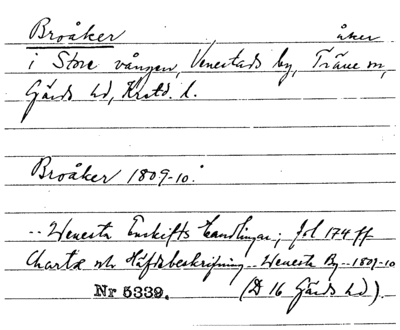 Broåker åker
i Store vången, Venestads by, Träne sn,
Gärds hd, Krstd. l.
Broåker 1809-10.
.. Wenesta Enskifts handlingar; fol 174 ff
Charta och Häfdebeskrifning .. Wenesta By .. 1809-10
Nr 5339. (D 16 Gärds hd).